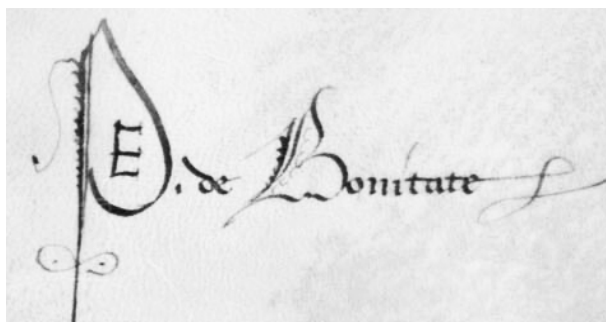 PE. de Bonitate